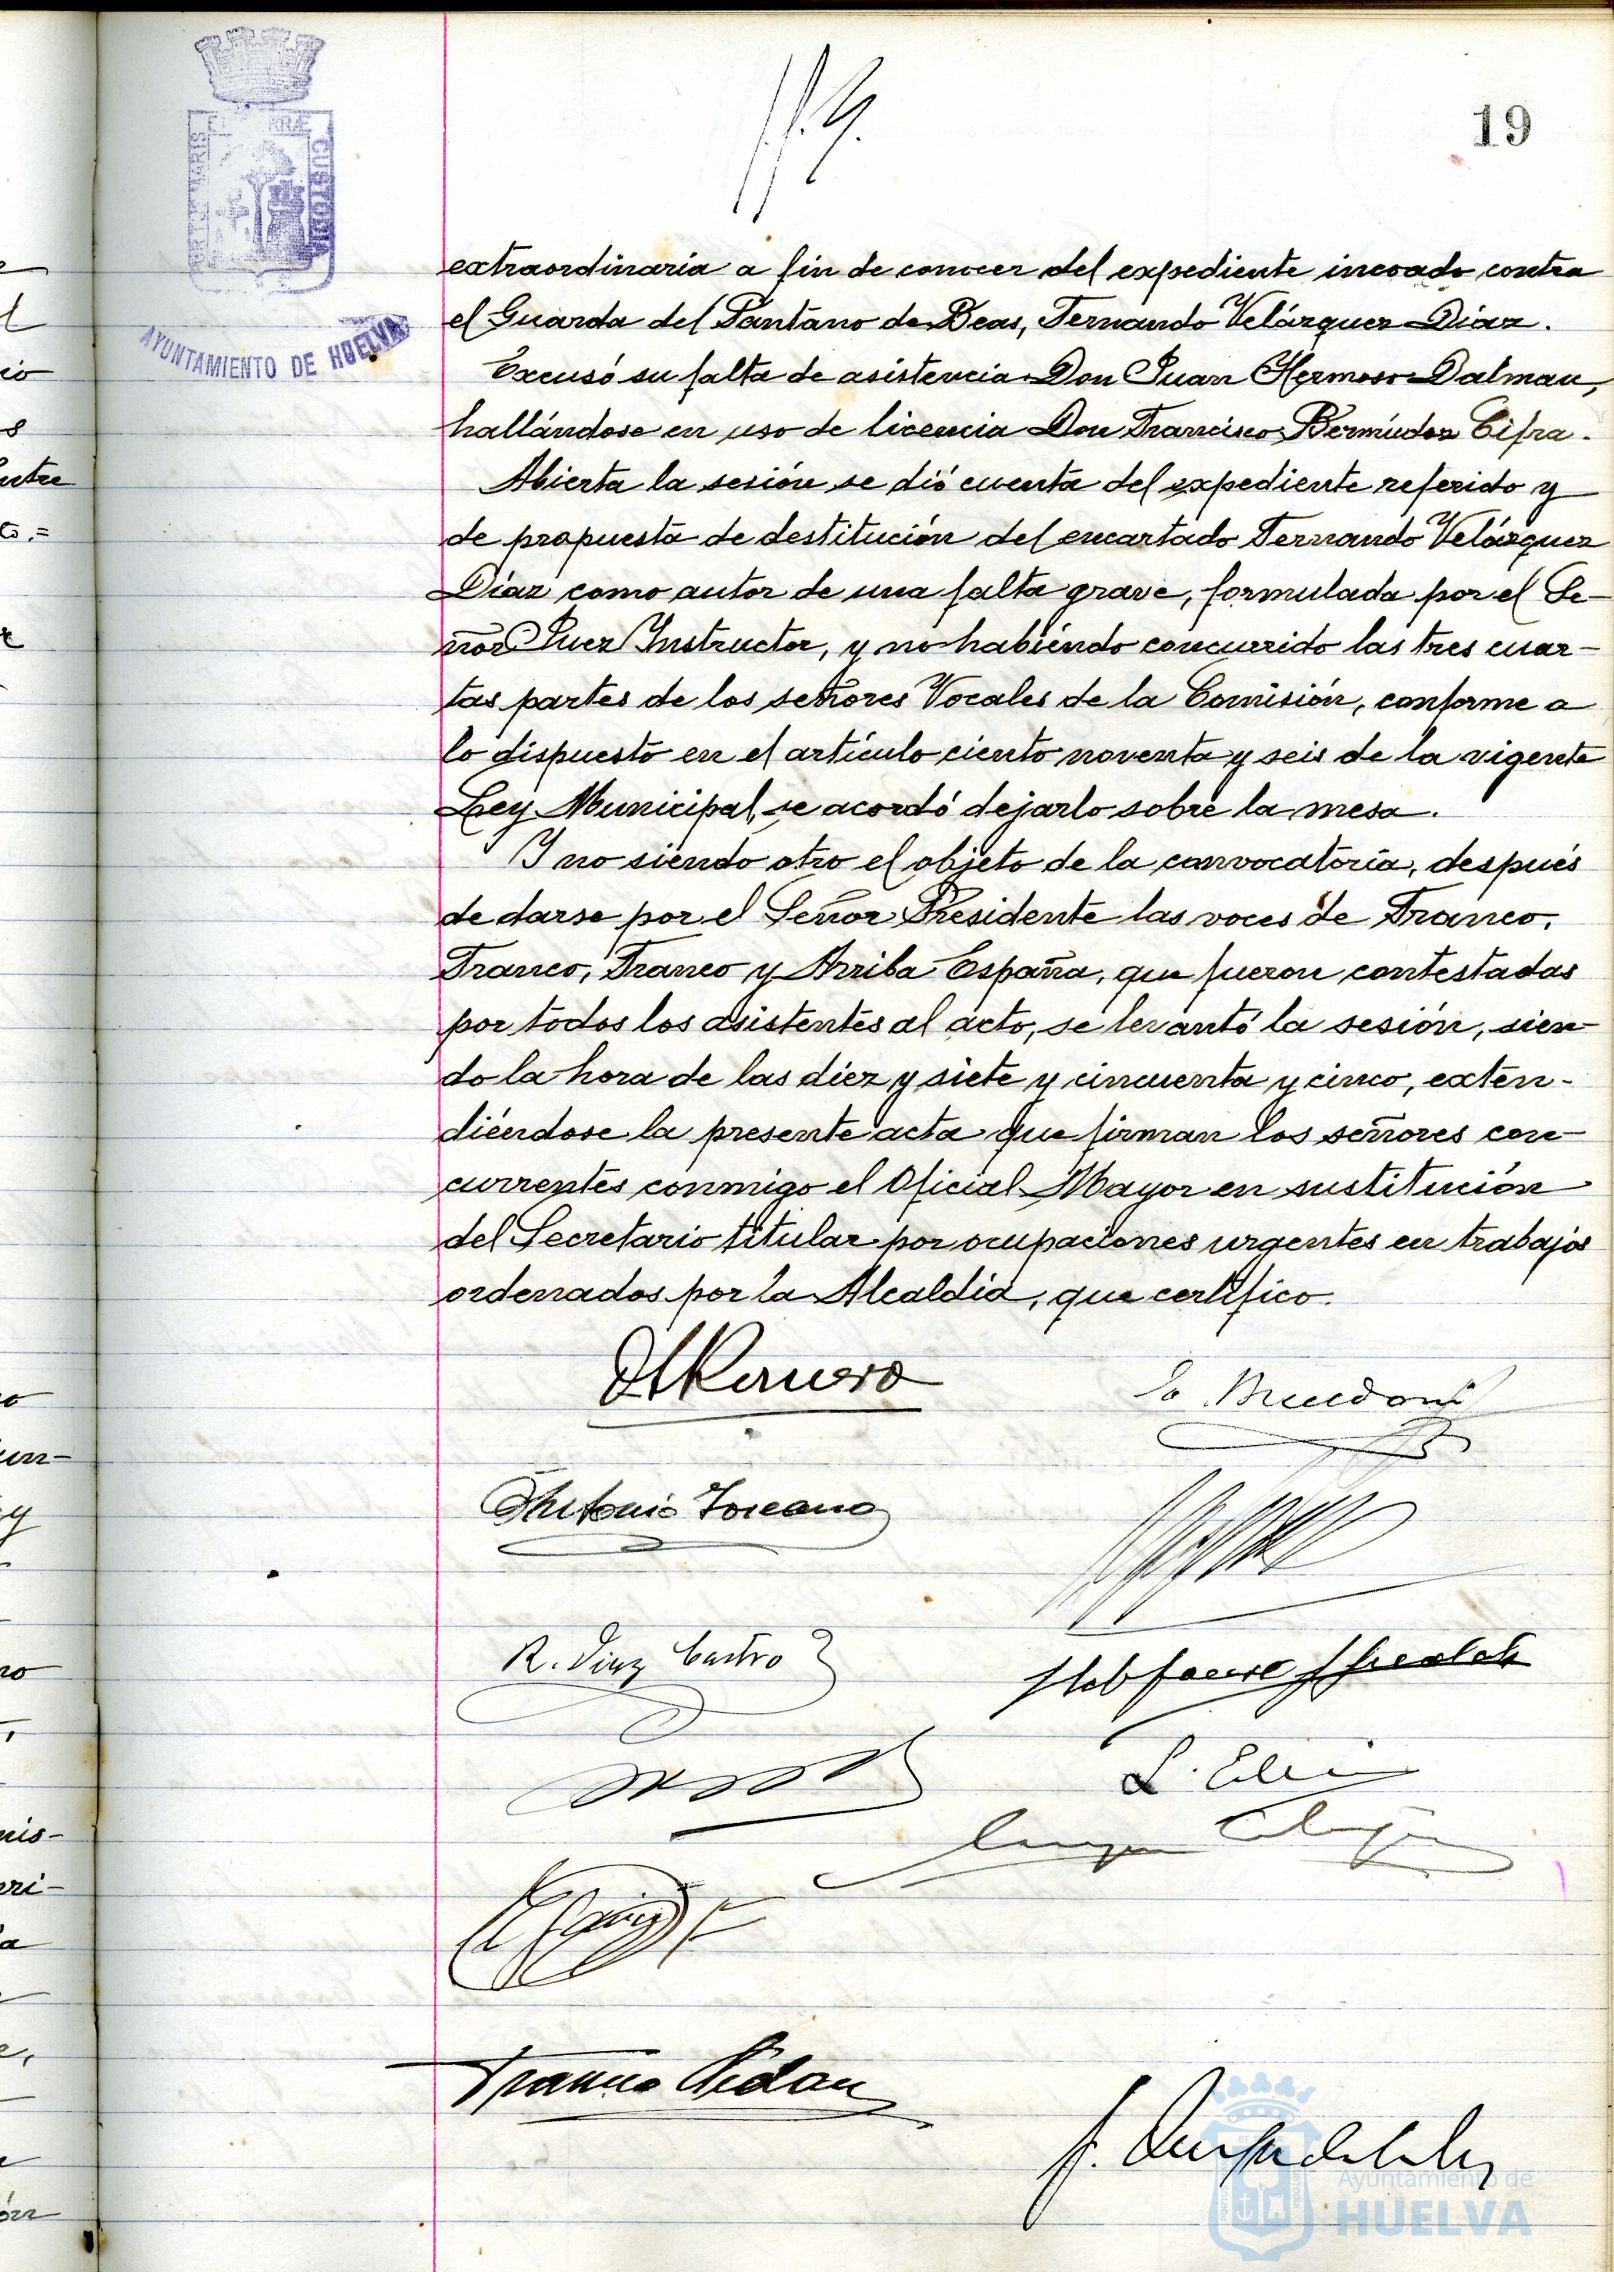 19
AYUNTAMIENTO DE HUELVA
extraordinaria a fin de conocer del expediente incoado contra
el Guarda del Pantano de Beas, Fernando Velázquez Díaz.
Excusó su falta de asistencia Don Juan Hermoso Dalmau,
hallándose en uso de licencia Don Francisco Bermúdez Cifra.
Abierta la sesión se dió cuenta del expediente referido y
de propuesta de destitución del encartado Fernando Velázquez
Díaz como autor de una falta grave, formulada por el Se-
ñor Juez Instructor, y no habiendo concurrido las tres cuar-
tas partes de los señores Vocales de la Comisión, conforme a
lo dispuesto en el artículo ciento noventa y seis de la vigente
Ley Municipal, se acordó dejarlo sobre la mesa.
Y no siendo otro el objeto de la convocatoria, después
de darse por el Señor Presidente las voces de Franco,
Franco, Franco y Arriba España, que fueron contestadas
por todos los asistentes al acto, se levantó la sesión, sien-
do la hora de las diez y siete y cincuenta y cinco, exten-
diéndose la presente acta que firman los señores con-
currentes conmigo el Oficial Mayor en sustitución
del Secretario titular por ocupaciones urgentes en trabajos
ordenados por la Alcaldía, que certifico.
Antonio Toscano
R. Díaz Castro
Ayuntamiento de
HUELVA